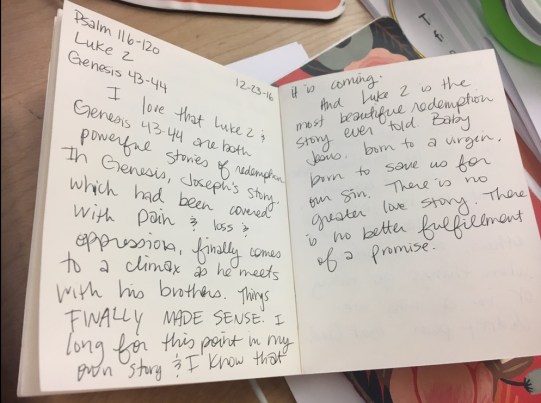 Psalm 116-120
Luke 2
Genesis 43-44
12-23-16
I love that Luke 2 &
Genesis 43-44 are both
powerful stories of redemption
In Genesis, Joseph's story.
which had been covered
with pain & loss &
oppression, finally comes
to a climax as he meets
with his brothers. Things
FINALLY MADE SENSE. I
long for this point in my
own story & I know that
it is coming.
And Luke 2 is the
most beautiful redemption
story ever told Baby
Jesus. born to a virgen.
born to save us for
our sin. There is no
greater love story. There
is no better fulfillment
of a promise.